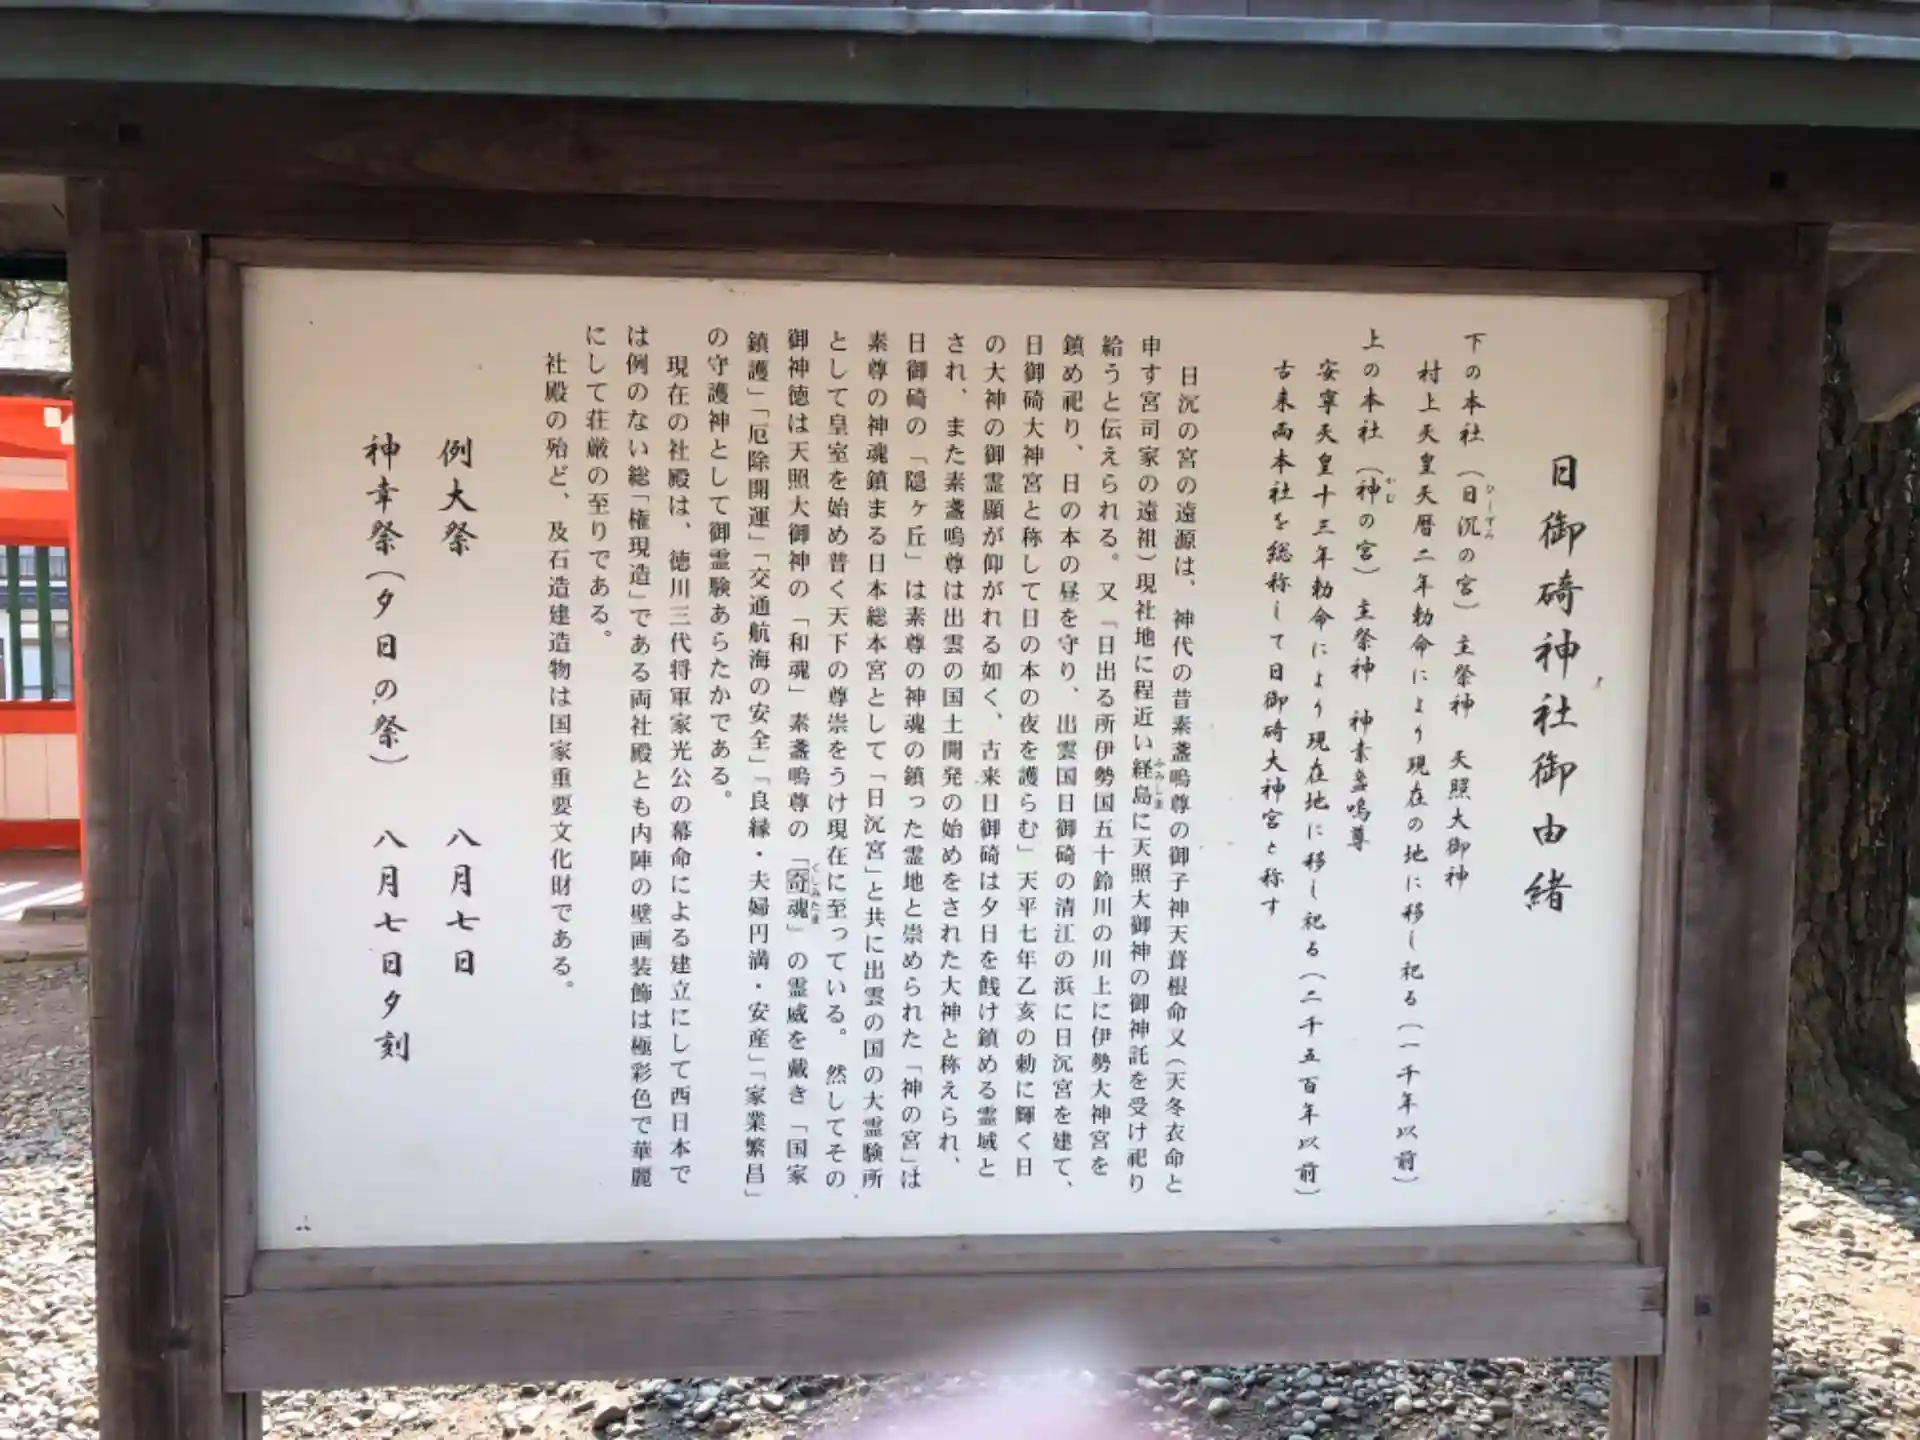 日御碕神社御由緒
下の本社（日沉の宮）　主祭神　天照大御神
村上天皇天暦二年勅命により現在の地に移し祀る（一千年以前）
上の本社（神の宮）　主祭神　神素盞嗚尊
安寧天皇十三年勅命により現在地に移し祀る（二千五百年以前）
古来両本社を総称して日御碕大神宮と称す
日沉の宮の遠源は、神代の昔素盞嗚尊の御子神天葺根命又（天冬衣命と
申す宮司家の遠祖）現社地に程近い経島に天照大御神の御神託を受け祀り
給うと伝えられる。又「日出る所伊勢国五十鈴川の川上に伊勢大神宮を
鎮め祀り、日の本の昼を守り、出雲国日御碕の清江の浜に日沉宮を建て、
日御碕大神宮と称して日の本の夜を護らむ」天平七年乙亥の勅に輝く日
の大神の御霊顕が仰がれる如く、古来日御碕は夕日を餞け鎮める霊域と
され、また素盞嗚尊は出雲の国土開発の始めをされた大神と称えられ、
日御碕の「隠ヶ丘」は素尊の神魂の鎮った霊地と崇められた「神の宮」は
素尊の神魂鎮まる日本総本宮として「日沉宮」と共に出雲の国の大霊験所
として皇室を始め普く天下の尊崇をうけ現在に至っている。然してその
御神徳は天照大御神の「和魂」素盞嗚尊の「奇魂」の霊威を戴き「国家
鎮護」「厄除開運」「交通航海の安全」「良縁・夫婦円満・安産」「家業繁昌」
の守護神として御霊験あらたかである。
現在の社殿は、徳川三代将軍家光公の幕命による建立にして西日本で
は例のない総「権現造」である両社殿とも内陣の壁画装飾は極彩色で華麗
にして荘厳の至りである。
社殿の殆ど、及石造建造物は国家重要文化財である。
例大祭　八月七日
神幸祭（夕日の祭）　八月七日夕刻